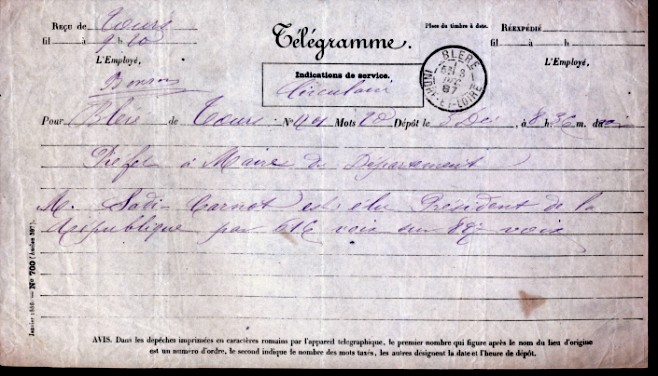 Reçu de Tours
fil à 9 h 10
L'Employé,
Télégramme.
Indications de service.
Circulaire
Place du timbre à date.
BLÉRÉ
3
DEC
87
INDRE-ET-LOIRE
RÉEXPÉDIÉ
fil à h
L'Employé,
Pour Bléré de Tours N° Mots 20 Dépôt le 3 Dec, à 8 h. 36 m. du soir
Préfet à Maires du Département
M. Sadi Carnot est élu Président de la
République par 616 voix sur 827 voix
Janvier 1886. — N° 700 (Ancien
AVIS. Dans les dépêches imprimées en caractères romains par l'appareil télégraphique, le premier nombre qui figure après le nom du lieu d'origine
est un numéro d'ordre, le second indique le nombre des mots taxés, les autres désignent la date et l'heure de dépôt.